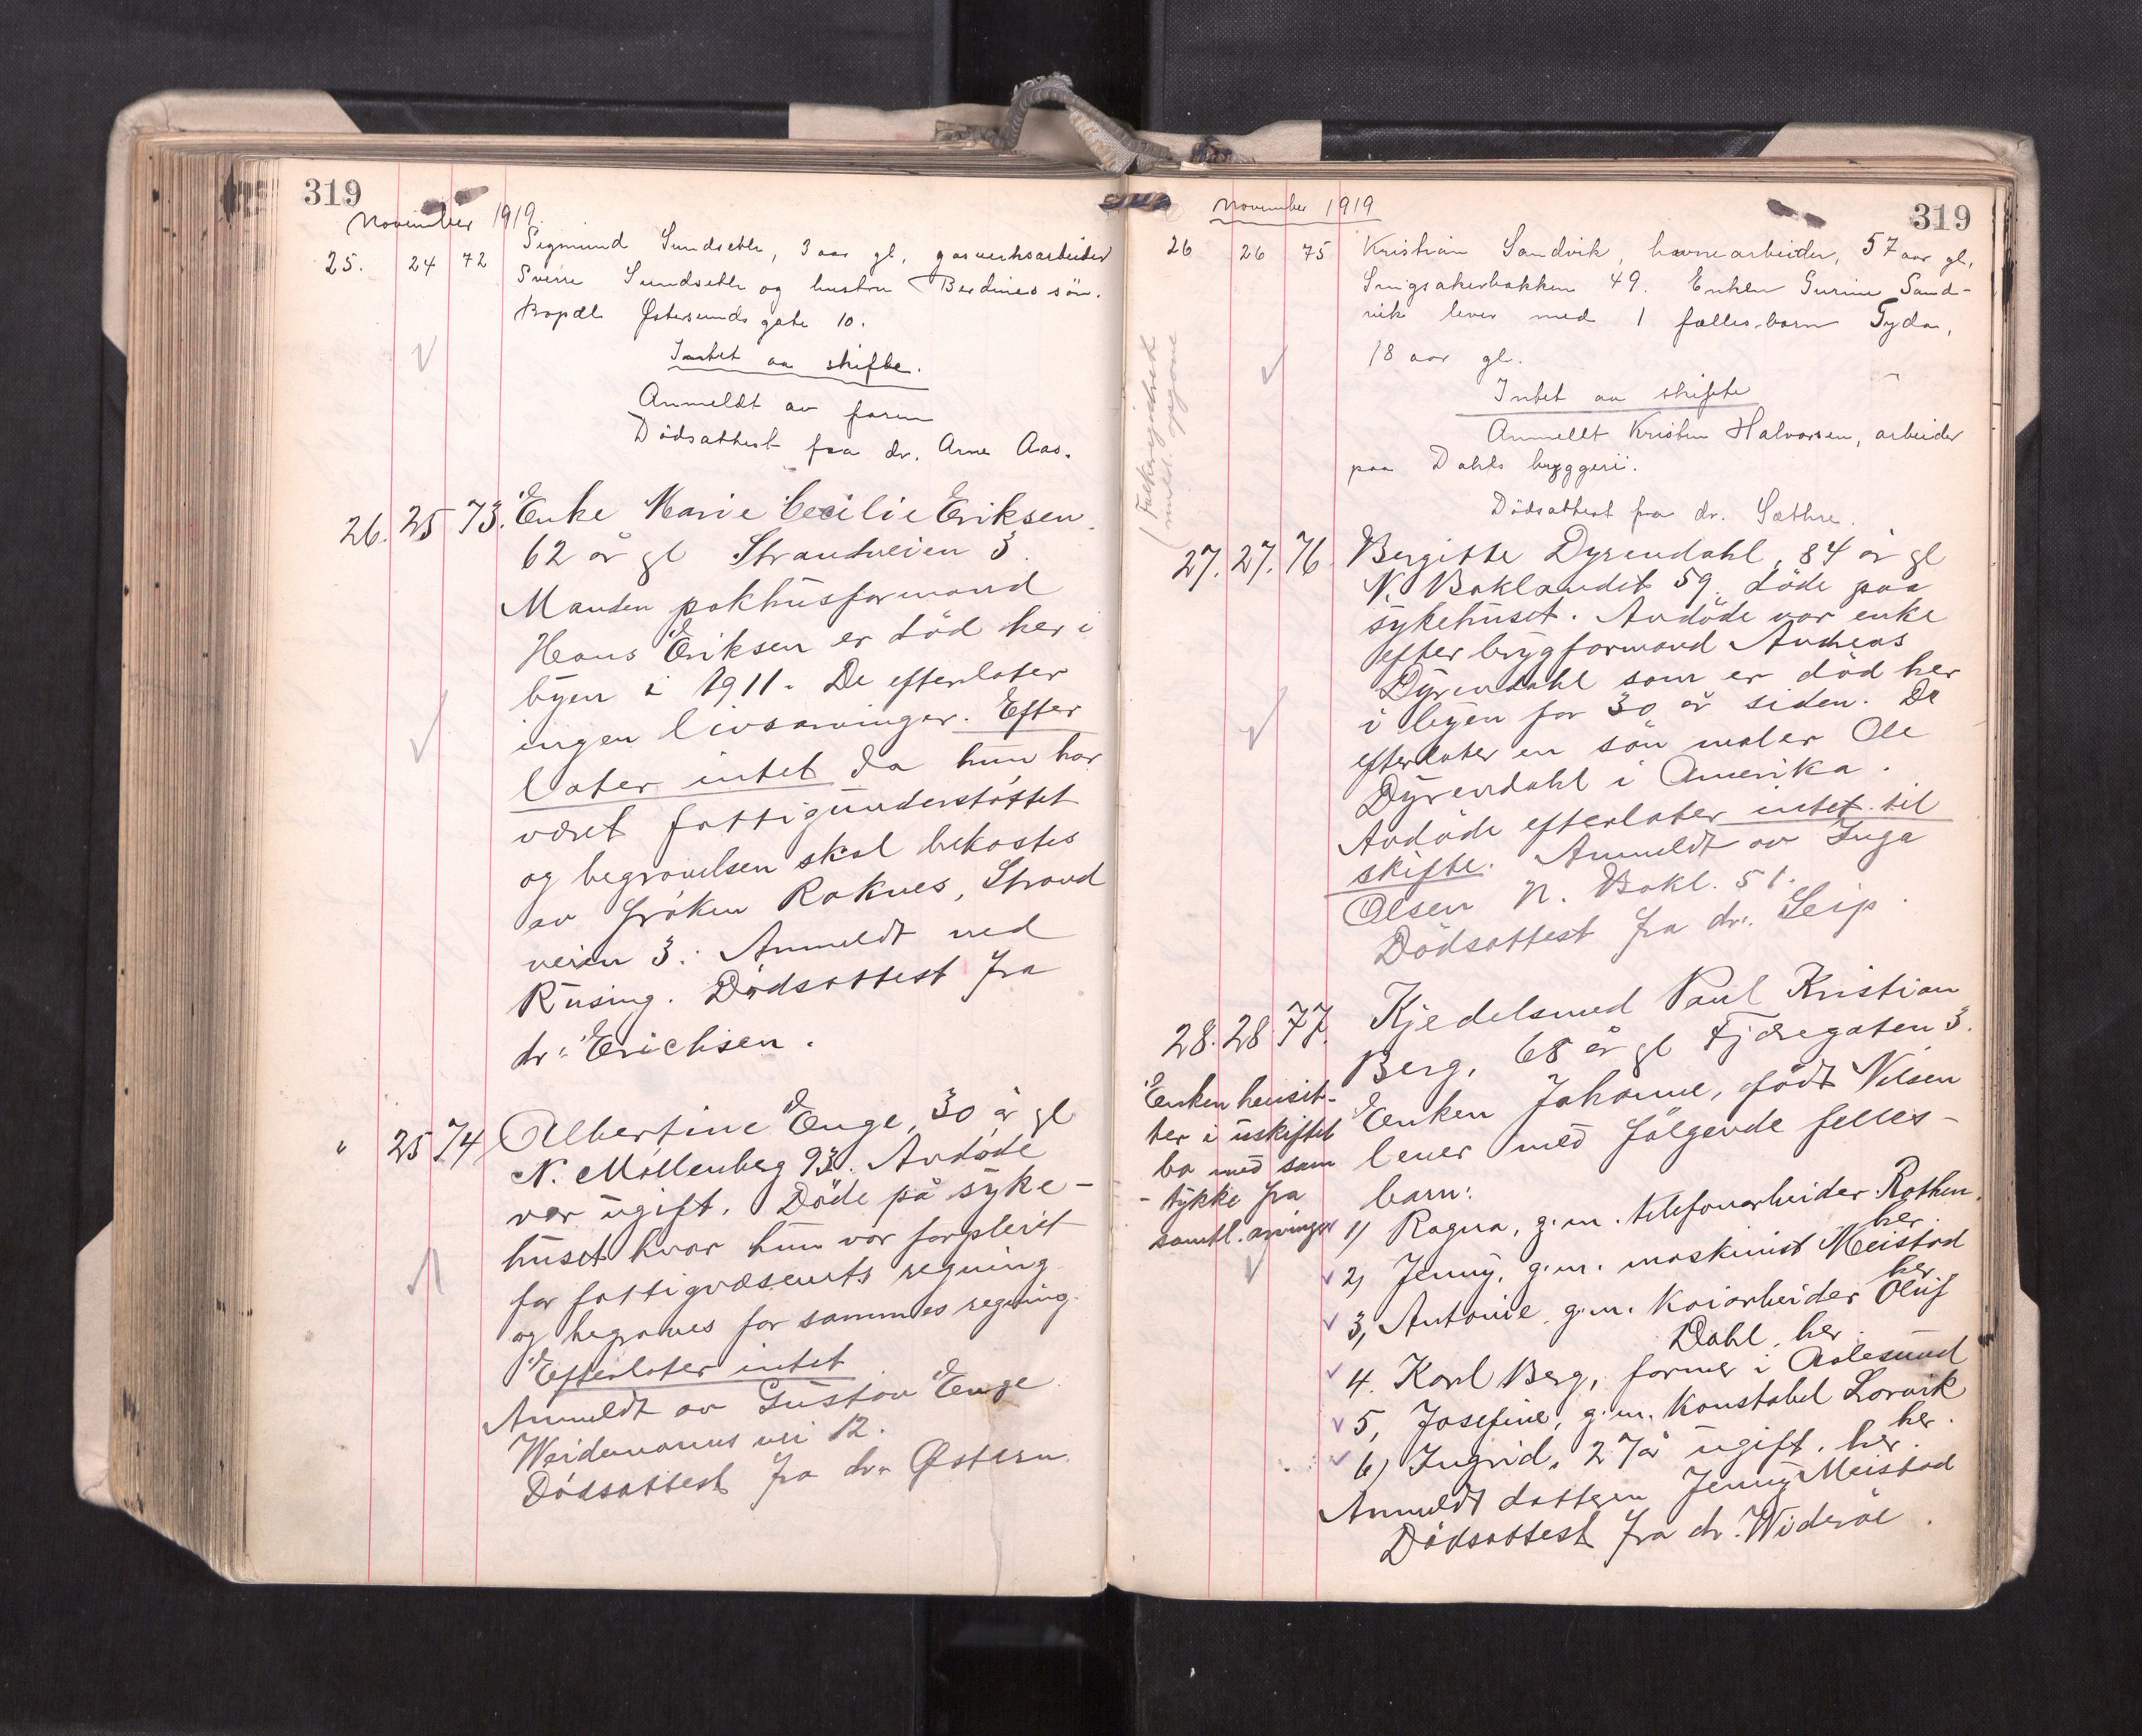 319
November 1919.
25. 24 72 Sigmund Sundseth, 3 aar gl, gasverksarbeider
Sverre Sundseth og hustru Berdines søn.
Bopæl Østersunds gate 10.
Intet aa skifte.
Anmeldt av faren
Dödsattest fra dr. Arne Aas.
26. 25 73. Enke Marie Cecilie Eriksen.
62 år gl Strandveien 3.
Manden pakhusformand
Hans Eriksen er död her i
byen i 1911. De efterlater
ingen livsarvinger. Efter
later intet da hun har
været fattigunderstöttet
og begravelsen skal bekostes
av fröken Raknes, Strand
veien 3. Anmeldt ved
Rusing. Dödsattest fra
dr. Erichsen.
" 25 74 Albertine Enge, 30 år gl
N. Möllenberg 93. Avdöde
var ugift. Döde på syke-
huset hvor hun var forpleiet
for fattigvæsenets regning
og begraves for sammes regning.
Efterlater intet
Anmeldt av Gustav Enge
Weidemanns vei 12.
Dödsattest fra dr. Østern.
319
November 1919
26 26 75 Kristian Sandvik, havnearbeider, 57 aar gl,
Singsakerbakken 49. Enken Gurine Sand-
vik lever med 1 fælles barn Gyda,
18 aar gl.
Intet aa skifte
Anmeldt Kristen Halvorsen, arbeider
paa Dahls bryggeri.
Dödsattest fra dr. Sæthre.
(Folkeregistret
opgave
27. 27. 76. Bergitte Dyrendahl, 84 år gl
N. Baklandet 59. Döde paa
sykehuset. Avdöde var enke
efter brygformand Andreas
Dyrendahl som er död her
i byen for 30 år siden. De
efterlater en sön maler Ole
Dyrendahl i Amerika.
Avdöde efterlater intet til
skifte. Anmeldt av Inga
Olsen N. Bakl. 51.
Dödsattest fra dr. Seip.
28. 28 77. Kjedelsmed Paul Kristian
Berg, 68 år gl Fjæregaten 3.
Enken Johanne, födt Nilsen
lever med fölgende felles-
barn:
Enken hensit-
ter i uskiftet
bo med sam
-tykke fra
samtl. arvinger
1) Ragna, g.m. telefonarbeider Rothen.
her.
2) Jenny, g.m. maskinist Meistad
her
3, Antonie, g.m. Kaiarbeider Oluf
Dahl, her.
4. Karl Berg, former i Aalesund
5, Josefine, g.m. Konstabel Lorvik
her.
6) Ingrid, 27 år ugift. her.
Anmeldt datteren Jenny Meistad
Dödsattest fra dr. Wideröe.